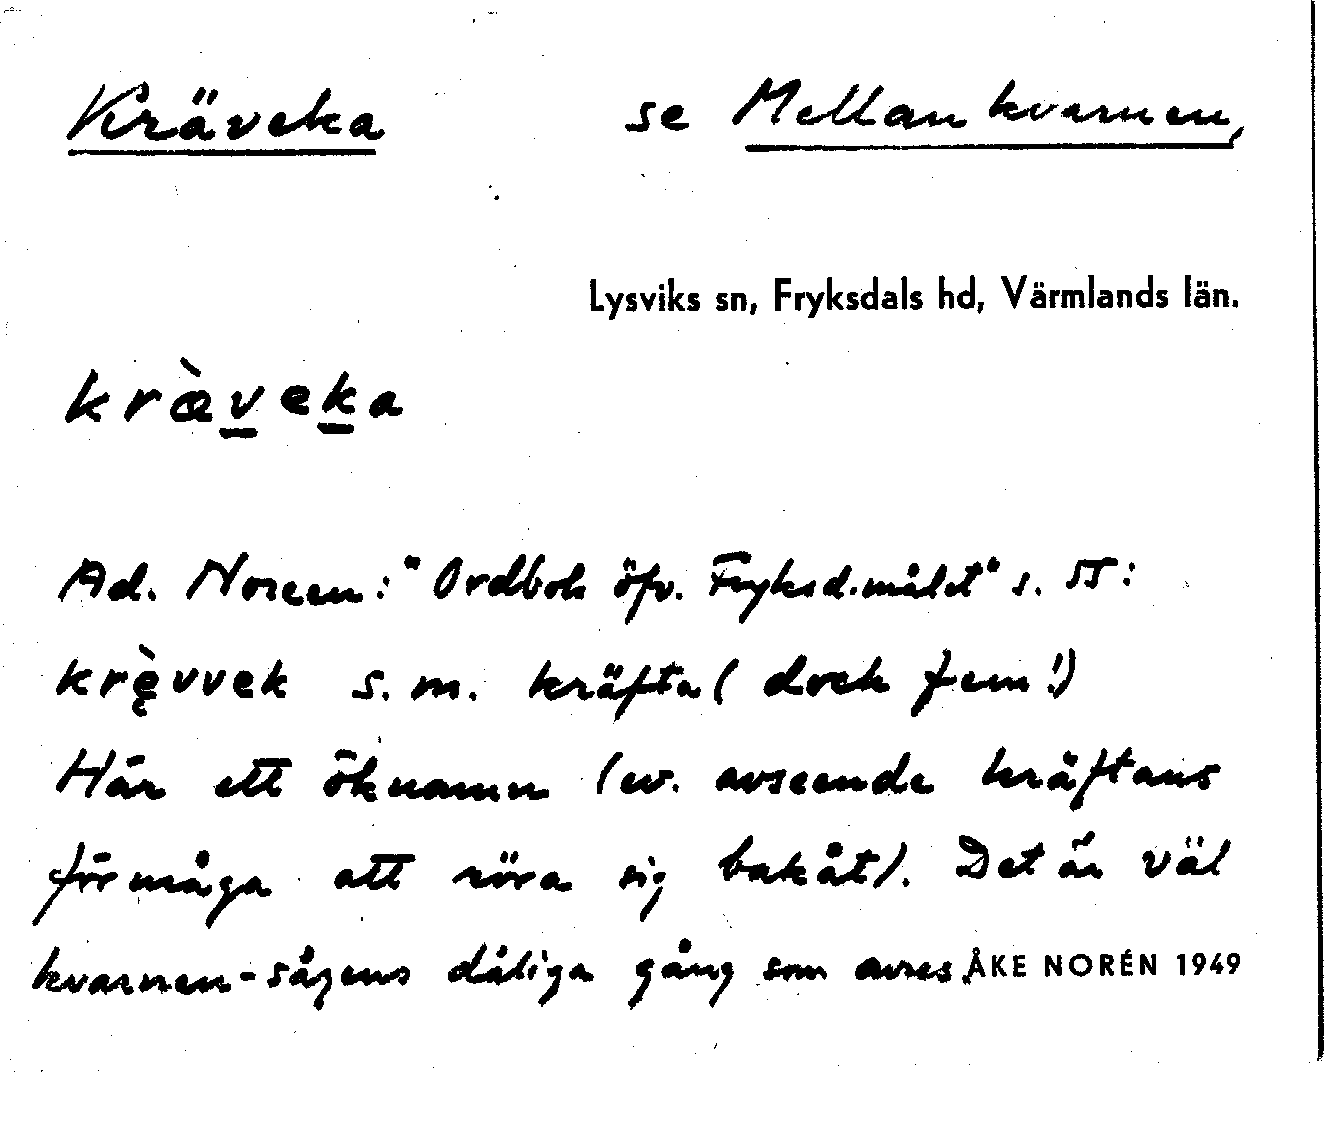 Kräveka se Mellankvarnen,
Lysviks sn, Fryksdals hd, Värmlands län.
kræ̀veka
Ad. Noreen: "Ordbok öfv. Fryksd.målet" s. 55:
krę̀vvek s. m. kräfta (dock fem!)
Här ett öknamn (ev. avseende kräftans
förmåga att röra sig bakåt). Det är väl
kvarnen-sågens dåliga gång som avses. ÅKE NORÉN 1949